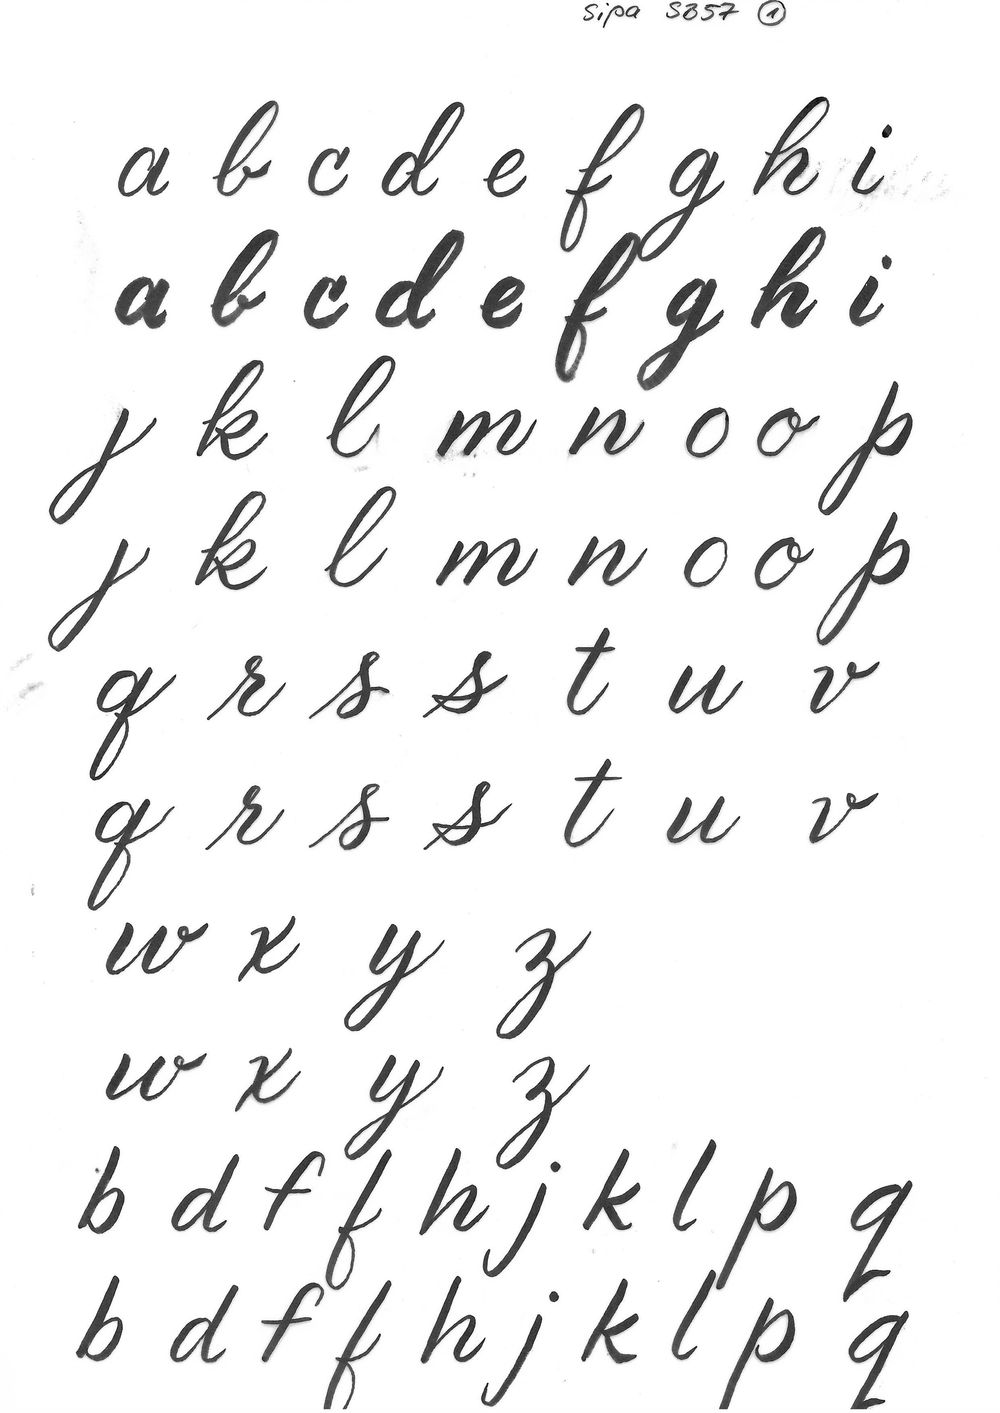 Sipa SB57 ①
a b c d e f g h i
a b c d e f g h i
j k l m n o o p
j k l m n o o p
q r s s t u v
q r s s t u v
w x y z
w x y z
b d f f h j k l p q
b d f f h j k l p q